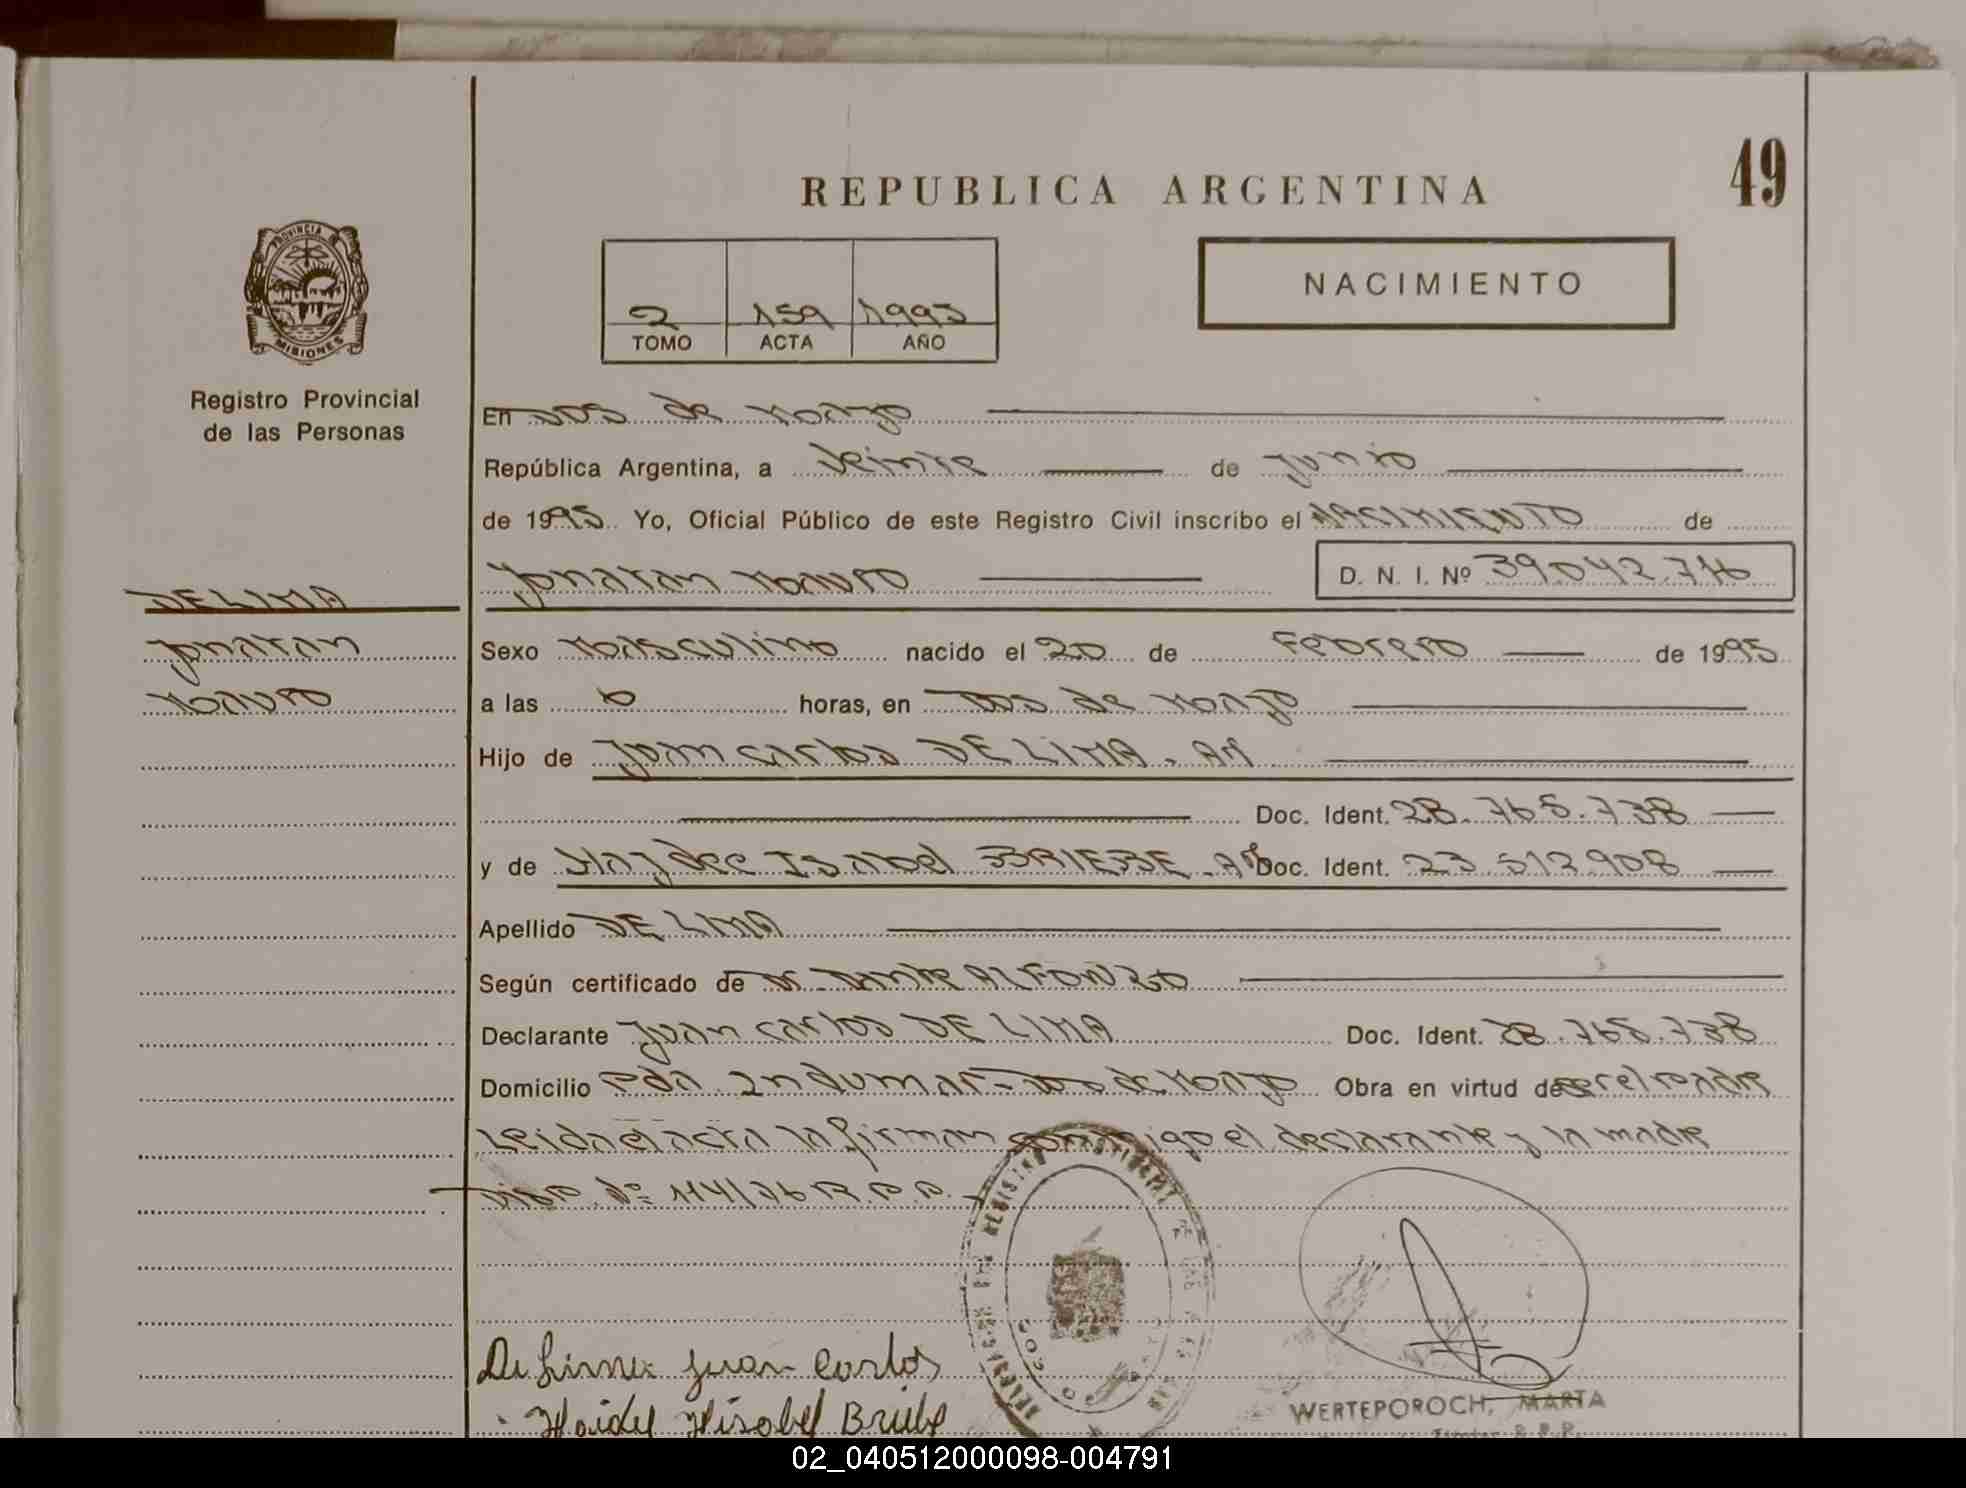 49
REPUBLICA ARGENTINA
NACIMIENTO
2 159 1995
TOMO ACTA AÑO
PROVINCIA DE
MISIONES
Registro Provincial
de las Personas
En Dos de Mayo
República Argentina, a Veinte de Junio
de 1995 Yo, Oficial Público de este Registro Civil inscribo el NACIMIENTO de
Jonatan Mauro D. N. I. Nº 39.042.716
DE LIMA
Jonatan
Mauro
Sexo Masculino nacido el 20 de Febrero de 1995
a las 6 horas, en Dos de Mayo
Hijo de Juan Carlos DE LIMA. AM
Doc. Ident. 28.765.738
y de Haydee Isabel BRIEBE. Doc. Ident. 23.512.908
Apellido DE LIMA
Según certificado de Dr. Dante ALFONZO
Declarante Juan Carlos DE LIMA Doc. Ident. 28.765.738
Domicilio Pda. Indumar-Dos de Mayo Obra en virtud de ser el padre
Leida el acta la firman conmigo el declarante y la madre
Disp. Nº 114/76 R.P.P.
De Lima Juan Carlos
WERTEPOROCH, MARTA
02_040512000098-004791